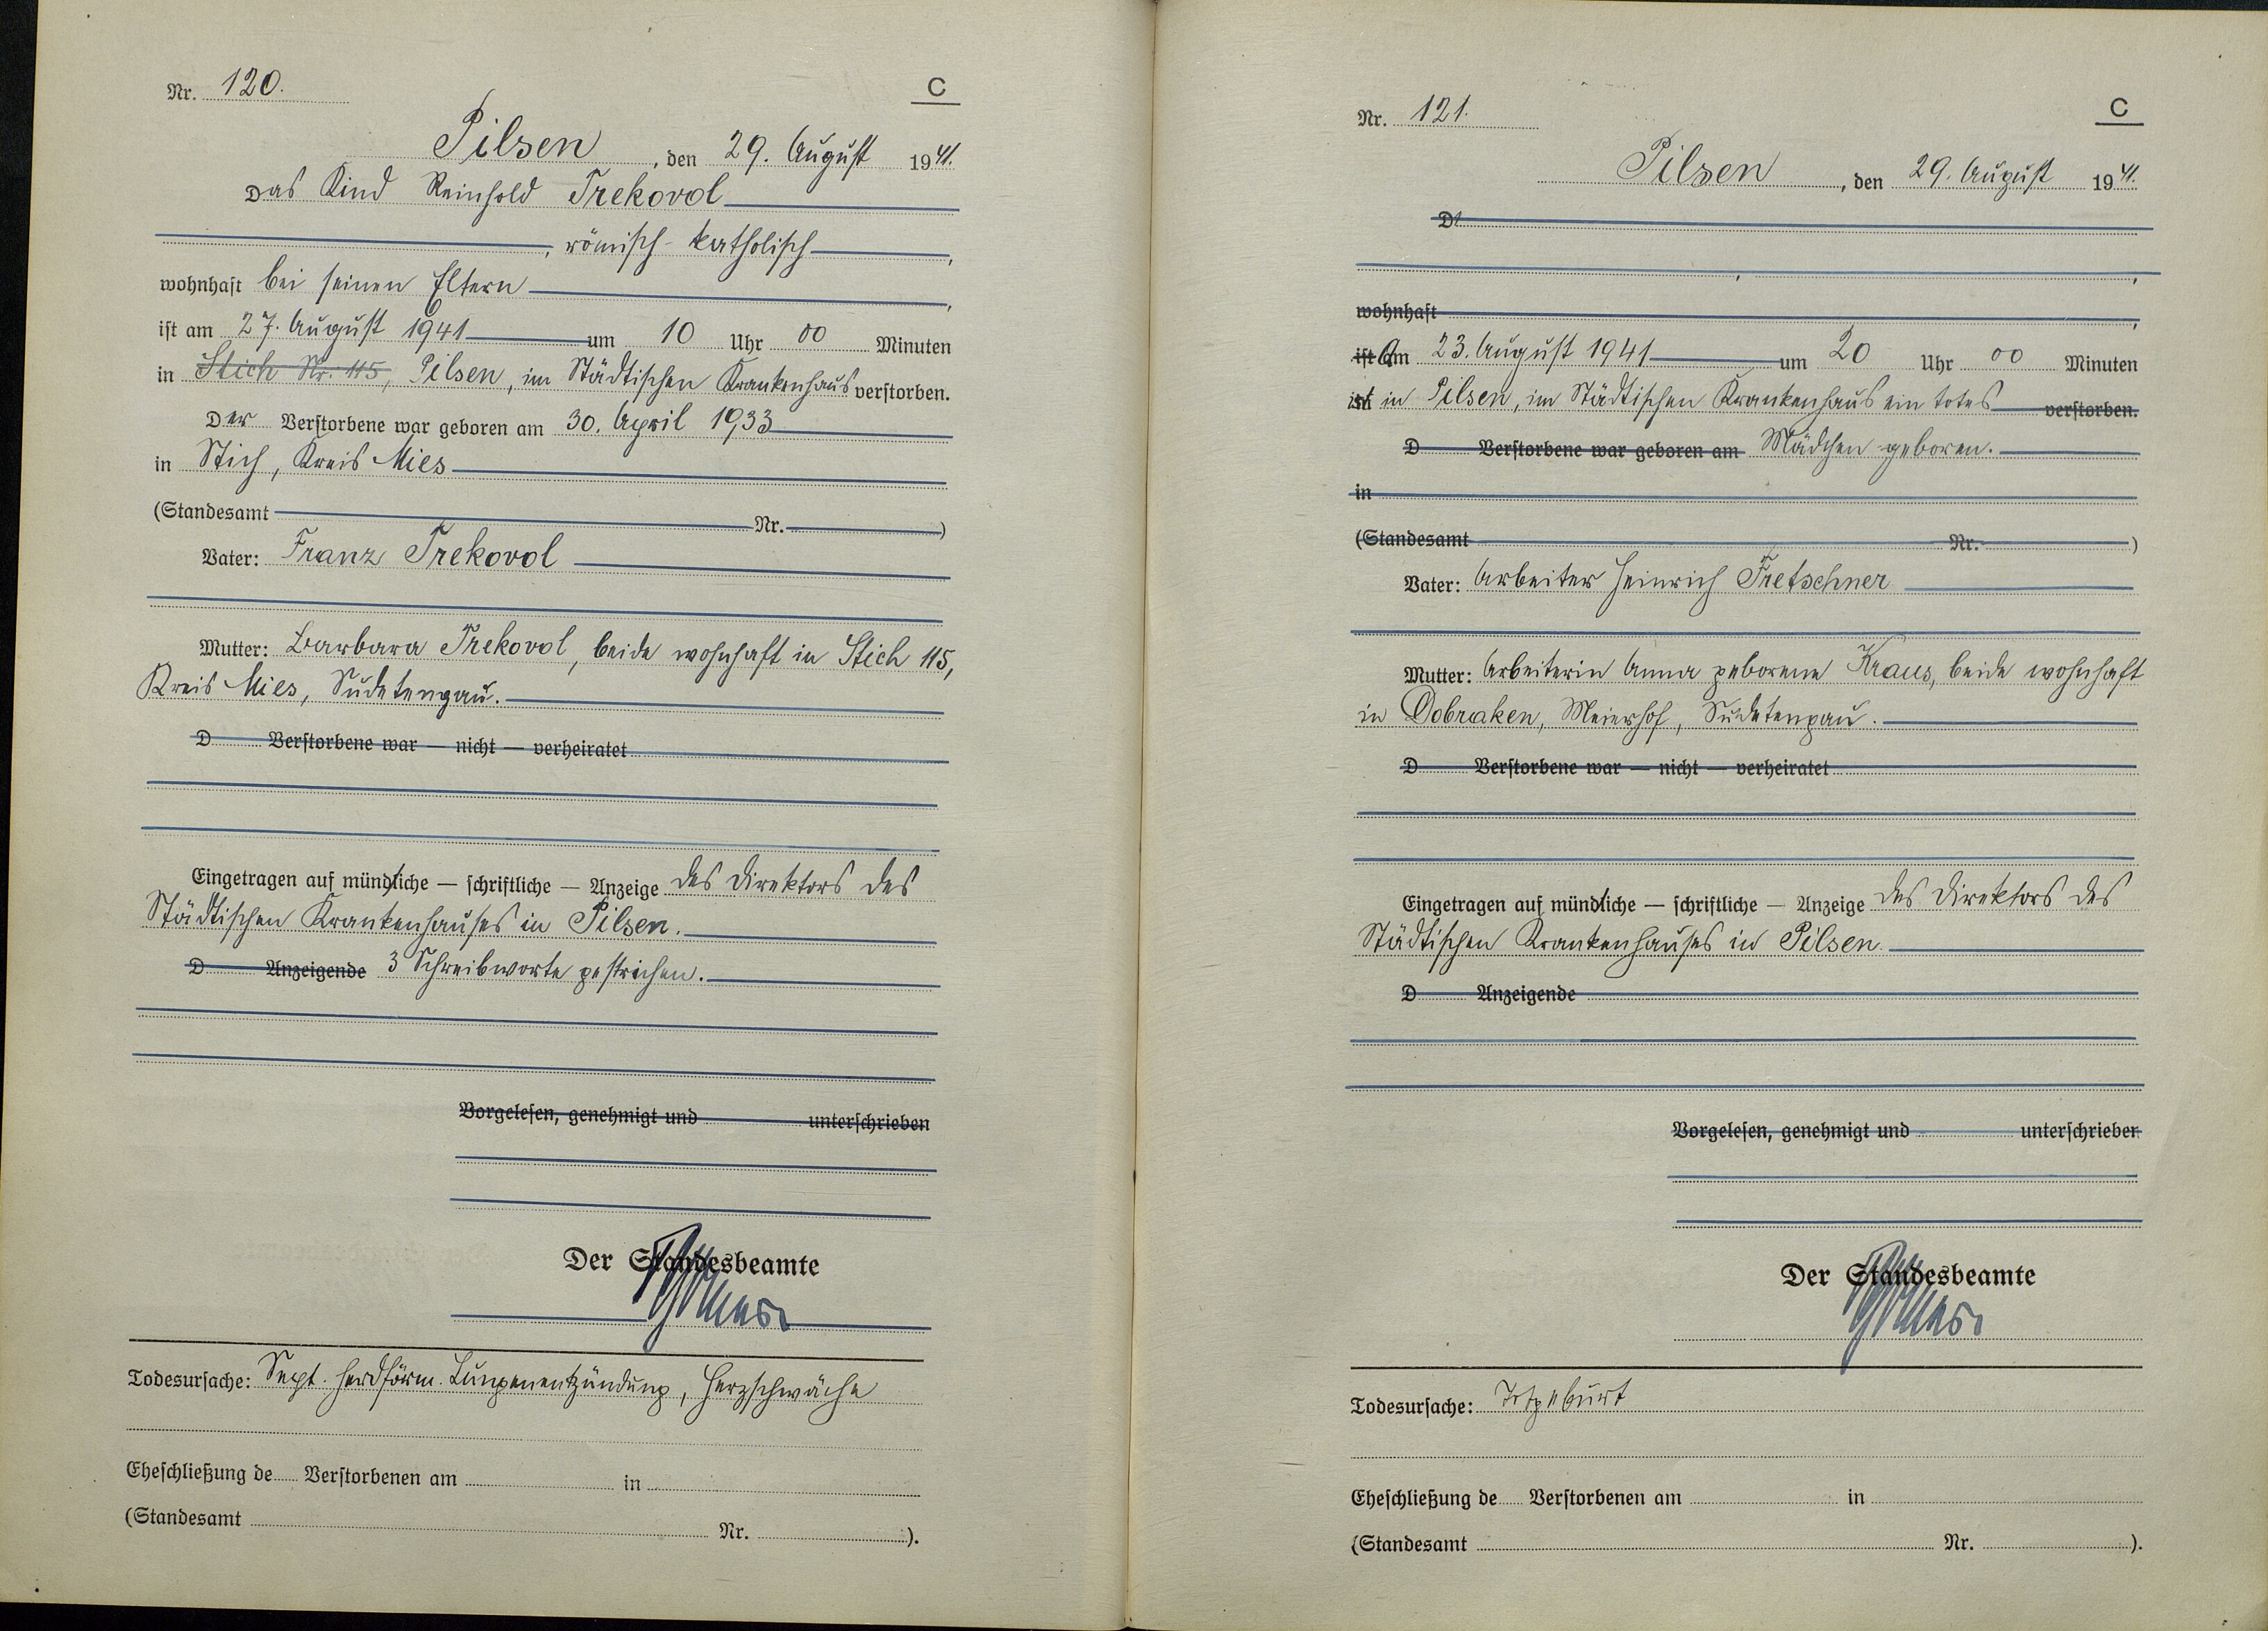 Nr. 120.
C
Pilsen, den 29. August 1941.
Das Kind Reinhold Trekovol
, römisch-katholisch,
wohnhaft bei seinen Eltern,
ist am 27. August 1941 um 10 Uhr 00 Minuten
in Stich Nr. 115, Pilsen, im Städtischen Krankenhaus verstorben.
Der Verstorbene war geboren am 30. April 1933
in Stich, Kreis Mies
(Standesamt Nr. )
Vater: Franz Trekovol
Mutter: Barbara Trekovol, beide wohnhaft in Stich 115,
Kreis Mies, Sudetengau.
D Verstorbene war — nicht — verheiratet
Eingetragen auf mündliche — schriftliche — Anzeige des Direktors des
Städtischen Krankenhauses in Pilsen.
D Anzeigende 3 Schreibworte gestrichen.
Vorgelesen, genehmigt und unterschrieben
Der Standesbeamte
Todesursache: Sept. herdförm. Lungenentzündung, Herzschwäche
Eheschließung de Verstorbenen am in
(Standesamt Nr. ).
Nr. 121.
C
Pilsen, den 29. August 1941.
D
, ,
wohnhaft ,
ist Am 23. August 1941 um 20 Uhr 00 Minuten
ist in Pilsen, im Städtischen Krankenhaus ein totes verstorben.
D Verstorbene war geboren am Mädchen geboren.
in
(Standesamt Nr. )
Vater: Arbeiter Heinrich Fretschner
Mutter: Arbeiterin Anna geborene Kraus, beide wohnhaft
in Dobraken, Meierhof, Sudetengau.
D Verstorbene war — nicht — verheiratet
Eingetragen auf mündliche — schriftliche — Anzeige des Direktors des
Städtischen Krankenhauses in Pilsen.
D Anzeigende
Vorgelesen, genehmigt und unterschrieben
Der Standesbeamte
Todesursache: Totgeburt
Eheschließung de Verstorbenen am in
(Standesamt Nr. ).